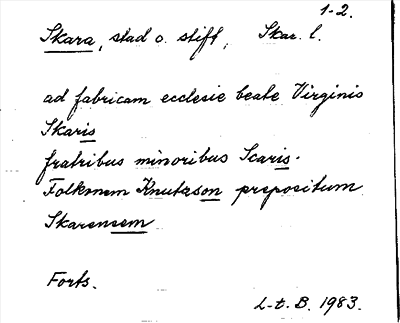 1-2.
Skara, stad o. stift, Skar. l.
ad fabricam ecclesie beate Virginis
Skaris
fratribus minoribus Scaris.
Folkonem Knutsson prepositum
Skarensem
Forts.
L-t. B. 1983.